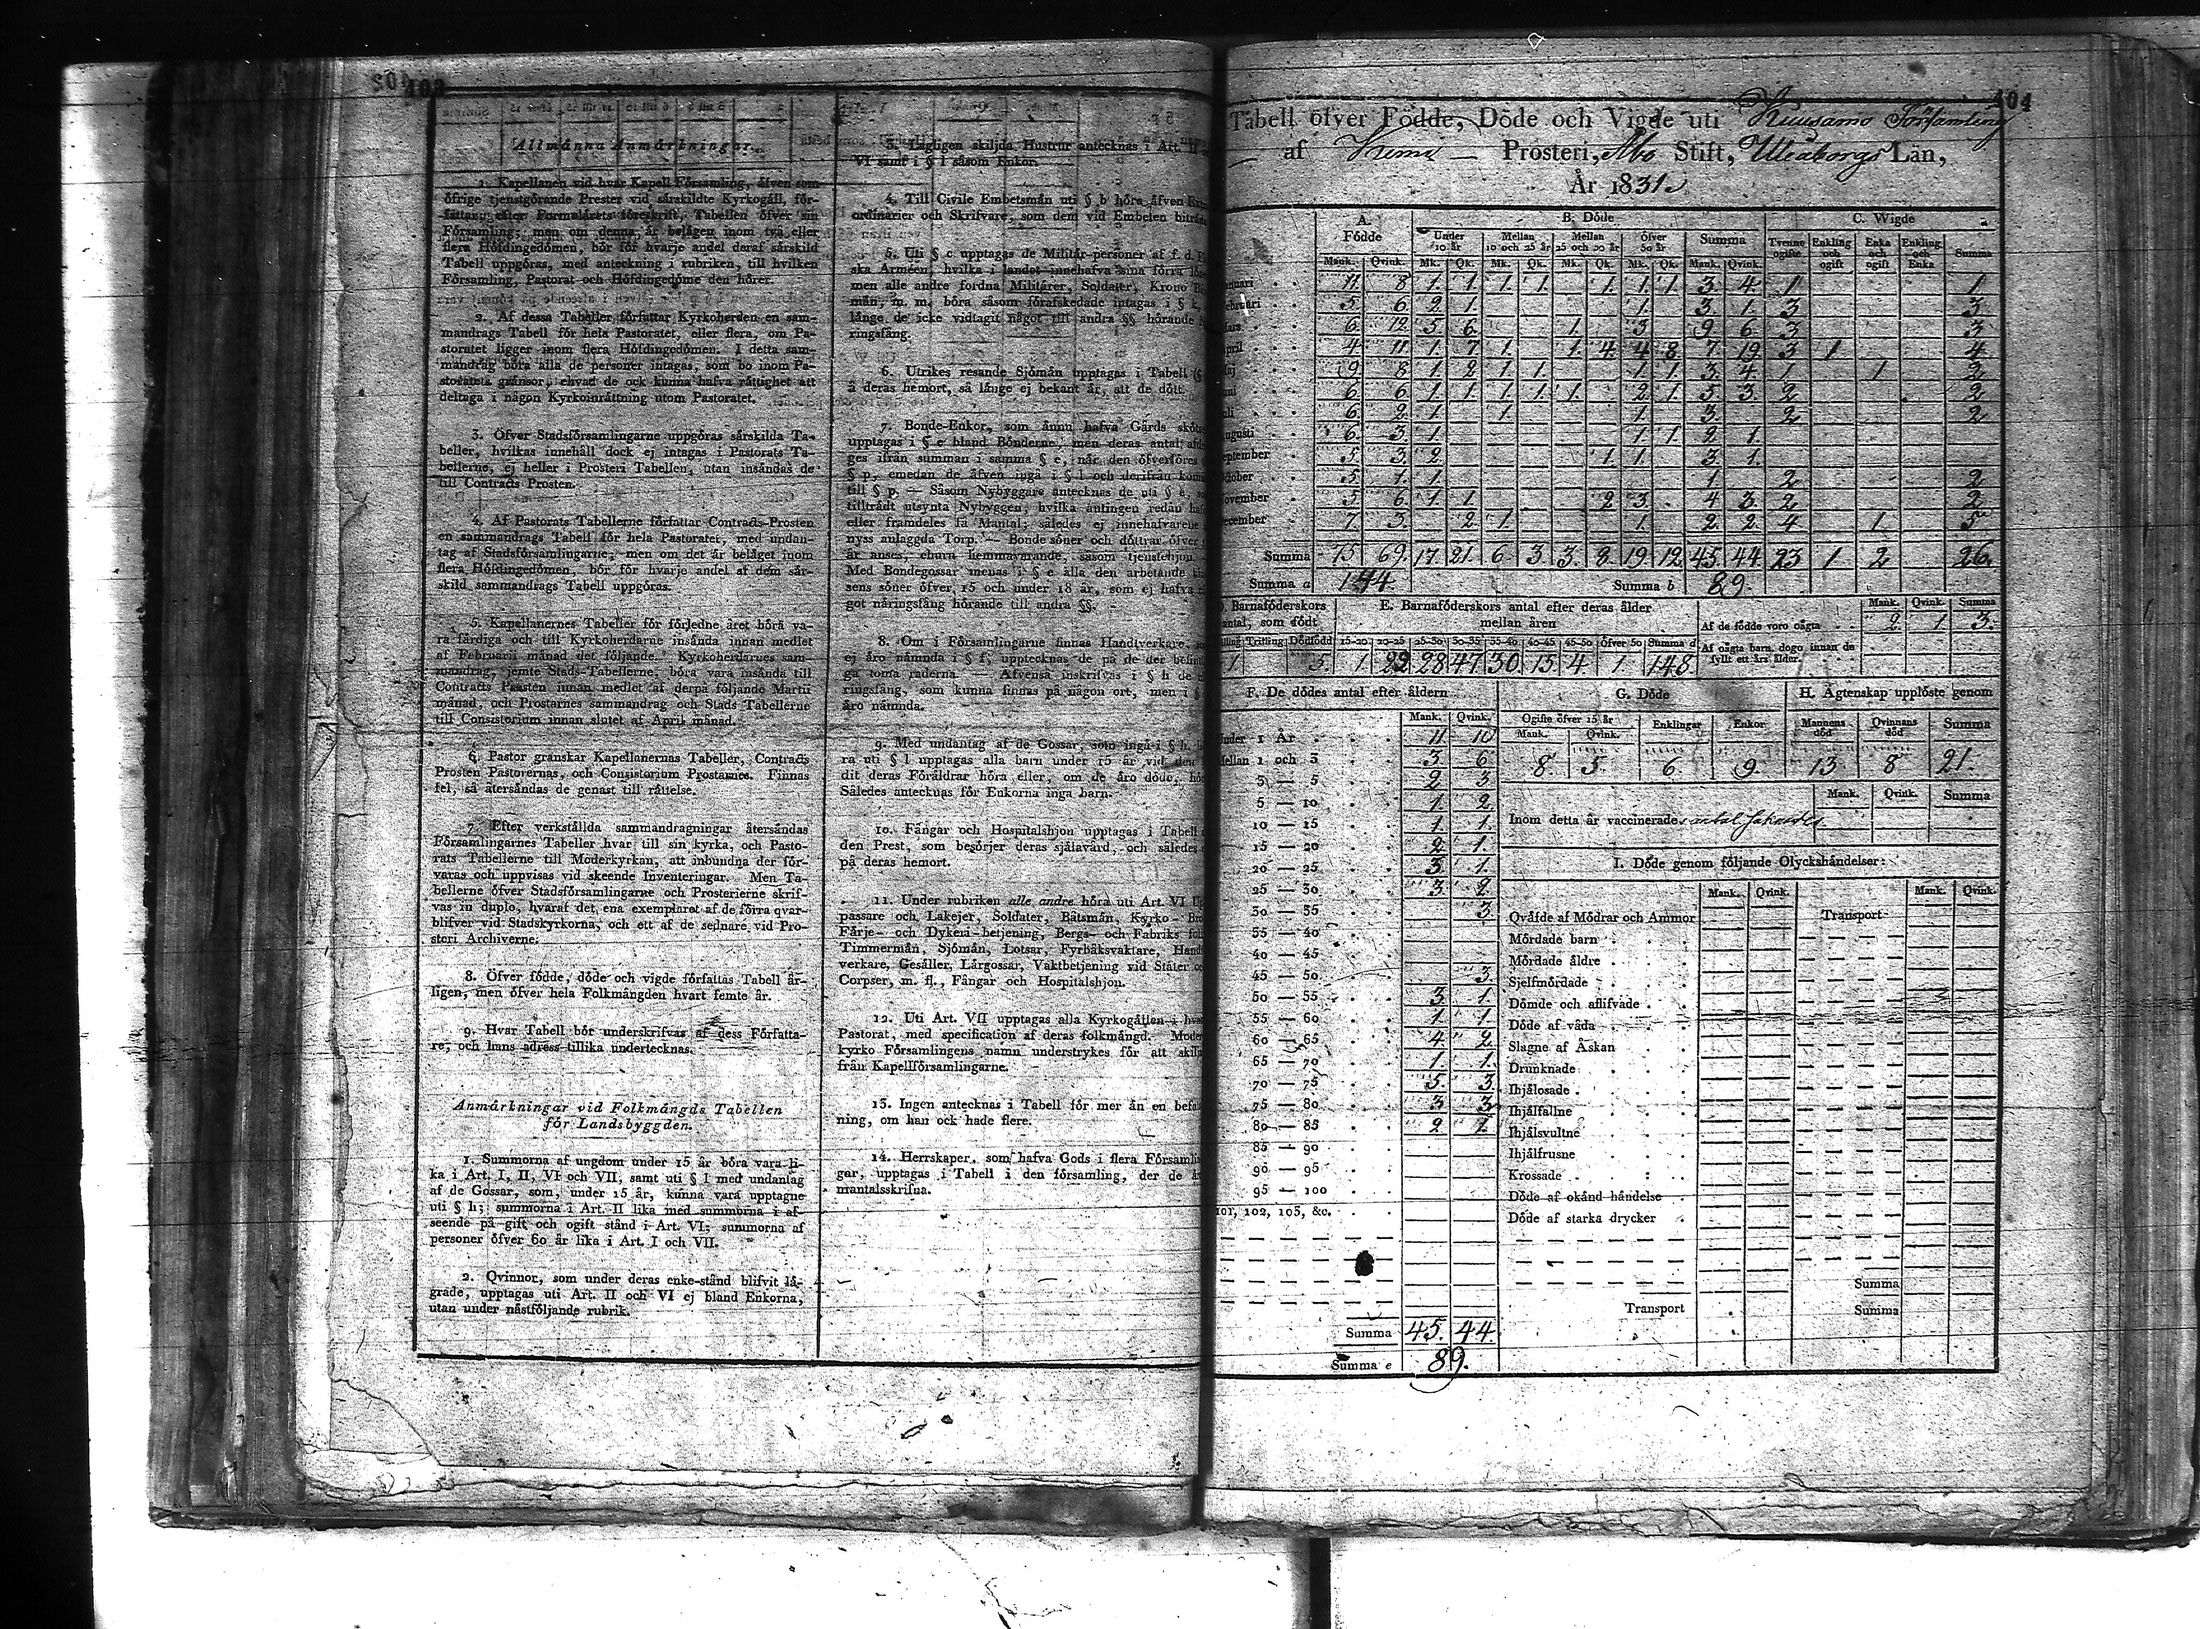 103
Allmänna Anmärkningar.
1. Kapellanen vid hvar Kapell Församling, äfven som
öfrige tjenstgörande Prester vid särskildte Kyrkogäll, för-
fattar, efter Formulärets föreskrift, Tabellen öfver sin
Församling; men om denna är belägen inom två eller
flera Höfdingedömen, bör för hvarje andel deraf särskild
Tabell uppgöras, med anteckning i rubriken, till hvilken
Församling, Pastorat och Höfdingedöme den hörer.
2. Af dessa Tabeller författar Kyrkoherden en sam-
mandrags Tabell för hela Pastoratet, eller flera, om Pa-
storatet ligger inom flera Höfdingedömen. I detta sam-
mandrag böra alla de personer intagas, som bo inom Pa-
storatets gränsor, ehvad de ock kunna hafva rättighet att
deltaga i någon Kyrkoinrättning utom Pastoratet.
3. Öfver Stadsförsamlingarne uppgöras särskilda Ta-
beller, hvilkas innehåll dock ej intagas i Pastorats Ta-
bellerne, ej heller i Prosteri Tabellen, utan insändas de
till Contracts Prosten.
4. Af Pastorats Tabellerne författar Contracts-Prosten
en sammandrags Tabell för hela Pastoratet, med undan-
tag af Stadsförsamlingarne; men om det är beläget inom
flera Höfdingedömen, bör för hvarje andel af dem sär-
skild sammandrags Tabell uppgöras.
5. Kapellanernes Tabeller för förledne året böra va-
ra färdiga och till Kyrkoherdarne insända innan medlet
af Februarii månad det följande. Kyrkoherdarnes sam-
mandrag, jemte Stads-Tabellerne, böra vara insända till
Contracts Prosten innan medlet af derpå följande Martii
månad, och Prostarnes sammandrag och Stads Tabellerne
till Consistorium innan slutet af April månad.
6. Pastor granskar Kapellanernas Tabeller, Contracts
Prosten Pastorernas, och Consistorium Prostarnes. Finnas
fel, så återsändas de genast till rättelse.
7. Efter verkställda sammandragningar återsändas
Församlingarnes Tabeller hvar till sin kyrka, och Pasto-
rats Tabellerne till Moderkyrkan, att inbundna der för-
varas och uppvisas vid skeende Inventeringar. Men Ta-
bellerne öfver Stadsförsamlingarne och Prosterierne skrif-
vas in duplo, hvaraf det ena exemplaret af de förra qvar-
blifver vid Stadskyrkorna, och ett af de sednare vid Pro-
steri Archiverne.
8. Öfver födde, döde och vigde författas Tabell år-
ligen, men öfver hela Folkmängden hvart femte år.
9. Hvar Tabell bör underskrifvas af dess Författa-
re, och hans adress tillika undertecknas.
Anmärkningar vid Folkmängds Tabellen
för Landsbyggden.
1. Summorna af ungdom under 15 år böra vara li-
ka i Art. I, II, VI och VII, samt uti § l med undantag
af de Gossar, som, under 15 år, kunna vara upptagne
uti § h; summorna i Art. II lika med summorna i af-
seende på gift och ogift stånd i Art. VI; summorna af
personer öfver 60 år lika i Art. I och VII.
2. Qvinnor, som under deras enke-stånd blifvit lä-
grade, upptagas uti Art. II och VI ej bland Enkorna,
utan under nästföljande rubrik.
3. Lagligen skiljda Hustrur antecknas i Art. II
VI samt i § l såsom Enkor.
4. Till Civile Embetsmän uti § b höra äfven
ordinarier och Skrifvare, som dem vid Embeten
5. Uti § c upptagas de Militär-personer af f. d.
ska Arméen, hvilka i landet innehafva sina förra
men alle andre fordna Militärer, Soldater, Krono
män, m. m. böra såsom förafskedade intagas i § k,
länge de icke vidtagit något till andra §§ hörande
ringsfång.
6. Utrikes resande Sjömän upptagas i Tabell
å deras hemort, så länge ej bekant är, att de dött.
7. Bonde-Enkor, som ännu hafva Gårds
upptagas i § e bland Bönderne, men deras antal
ges ifrån summan i samma § e, när den öfverföres
§ p, emedan de äfven ingå i § l och derifrån
till § p. — Såsom Nybyggare antecknas de uti § e,
tillträdt utsynta Nybyggen, hvilka antingen redan
eller framdeles få Mantal; således ej innehafvarene
nyss anlaggda Torp. — Bonde söner och döttrar öfver
år anses, ehuru hemmavarande, såsom tjenstehjon.
Med Bondegossar menas i § e alla den arbetande
sens söner öfver 15 och under 18 år, som ej hafva
got näringsfång hörande till andra §§.
8. Om i Församlingarne finnas Handtverkare,
ej äro nämnda i § f, upptecknas de på de der
ga toma raderna. — Äfvenså inskrifvas i § h de
ringsfång, som kunna finnas på någon ort, men i §
äro nämnda.
9. Med undantag af de Gossar, som ingå i § h,
ra uti § l upptagas alla barn under 15 år vid den
dit deras Föräldrar höra eller, om de äro döde,
Således antecknas för Enkorna inga barn.
10. Fångar och Hospitalshjon upptagas i Tabell
den Prest, som besörjer deras själavård, och således
på deras hemort.
11. Under rubriken alle andre höra uti Art. VI
passare och Lakejer, Soldater, Båtsmän, Kyrko-
Färje- och Dykeri-betjening, Bergs- och Fabriks
Timmermän, Sjömän, Lotsar, Fyrbåksvaktare,
verkare, Gesäller, Lärgossar, Vaktbetjening vid Stater
Corpser, m. fl., Fångar och Hospitalshjon.
12. Uti Art. VII upptagas alla Kyrkogällen i
Pastorat, med specification af deras folkmängd.
kyrko Församlingens namn understrykes för att
från Kapellförsamlingarne.
13. Ingen antecknas i Tabell för mer än en
ning, om han ock hade flere.
14. Herrskaper, som hafva Gods i flera
gar, upptagas i Tabell i den församling, der de
mantalsskrifna.
104
Tabell öfver Födde, Döde och Vigde uti Kuusamo Församling
af Kemi Prosteri, Åbo Stift, Uleåborgs Län,
År 1831.
A. Födde B. Döde C. Wigde
Under 10 år Mellan 10 och 25 år Mellan 25 och 50 år Öfver 50 år Summa Tvenne ogifte Enkling och ogift Enka och ogift Enkling och Enka Summa
Mank. Qvink. Mk. Qk. Mk. Qk. Mk. Qk. Mk. Qk. Mank. Qvink.
11 8 1. 1. 1. 1. 1. 1. 1. 3 4 1 1
5 6 2 1. 1. 3. 1. 3 3
6. 12 5 6 1. 3 9 6 3 3
April 4 11 1. 7 1. 1. 4 4 8 7 19 3 1 4
9 8 1 2 1 1 1 1 3 4 1 1 2
6 6 1 1 1 1 1 2 1 5 3 2 2
6 2 1 1 1. 3 2 2
6 3 1. 1 1 2 1.
September 5 3 2 1. 1. 3 1.
5 1. 1. 1 2 2
November 5 6 1 1 2 3 4 3 2 2
7 3 2 1. 1. 2 2 4 1. 5
Summa 75 69 17 21 6 3 3 8 19 12 45 44 23 1 2 26
Summa a 144 Summa b 89.
Barnaföderskors antal, som födt E. Barnaföderskors antal efter deras ålder mellan åren
Mank. Qvink. Summa
Af de födde voro oägta 2. 1. 3.
Trilling Dödfödd 15-20 20-25 25-30 30-35 35-40 40-45 45-50 Öfver 50 Summa d
1 3. 1 22 28 47 30 15 4. 1 148.
Af oägta barn, dogo innan de fyllt ett års ålder
F. De dödes antal efter åldern
Mank. Qvink.
under 1 År 11 10
Mellan 1 och 3 3 6
3 — 5 2 3
5 — 10 1. 2
10 — 15 1. 1.
15 — 20 2 1.
20 — 25 3 1.
25 — 30 3 2
30 — 35 3
35 — 40
40 — 45
45 — 50 3
50 — 55 3 1.
55 — 60 1 1
60 — 65 4 2
65 — 70 1. 1.
70 — 75 5 3
75 — 80 3 3
80 — 85 2 1
85 — 90
90 — 95
95 — 100
101, 102, 103, &c.
Summa 45. 44
Summa e 89.
G. Döde
Ogifte öfver 15 år Enklingar Enkor
Mank. Qvink.
8. 5. 6. 9.
H. Ägtenskap upplöste genom
Mannens död Qvinnans död Summa
13 8 21.
Mank. Qvink. Summa
Inom detta år vaccinerades antal saknades.
I. Döde genom följande Olyckshändelser:
Mank. Qvink. Mank. Qvink.
Qväfde af Mödrar och Ammor Transport
Mördade barn
Mördade äldre
Sjelfmördade
Dömde och aflifvade
Döde af våda
Slagne af Åskan
Drunknade
Ihjälosade
Ihjälfallne
Ihjälsvultne
Ihjälfrusne
Krossade
Döde af okänd händelse
Döde af starka drycker
Summa
Transport Summa